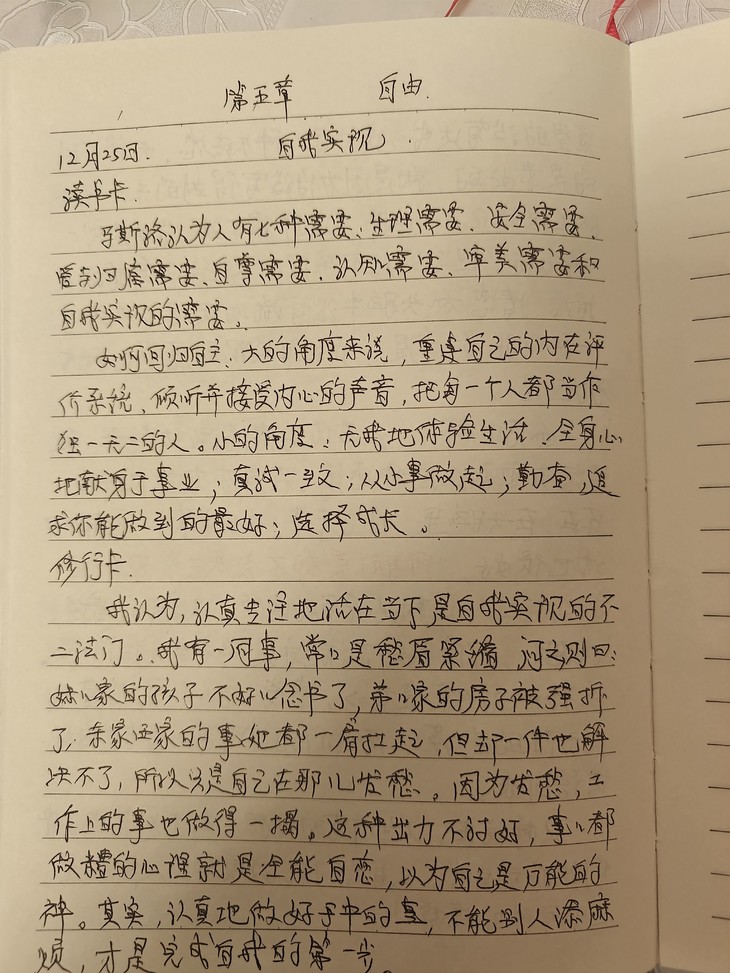 第五章 自由.
12月25日. 自我实现.
读书卡.
马斯洛认为人有七种需要、生理需要、安全需要、
爱与归属需要、自尊需要、认知需要、审美需要和
自我实现的需要。
如何回归自主、大的角度来说，重建自己的内在评
价系统、倾听并接受内心的声音，把每一个人都当作
独一无二的人。小的角度：无我地体验生活、全身心
地献身于事业；真诚一致；从小事做起；勤奋，追
求你能做到的最好；选择成长。
修行卡.
我认为，认真专注地活在当下是自我实现的不
二法门。我有一同事，常常是愁眉紧缩，问之则曰：
妹妹家的孩子不好好念书了，弟弟家的房子被强拆
了，东家西家的事她都一肩扛起，但却一件也解
决不了，所以总是自己在那儿发愁。因为发愁，工
作上的事也做得一塌。这种出力不讨好，事事都
做糟的心理就是全能自恋，以为自己是万能的
神。其实，认真地做好手中的事，不能别人添麻
烦，才是完成自我的第一步。